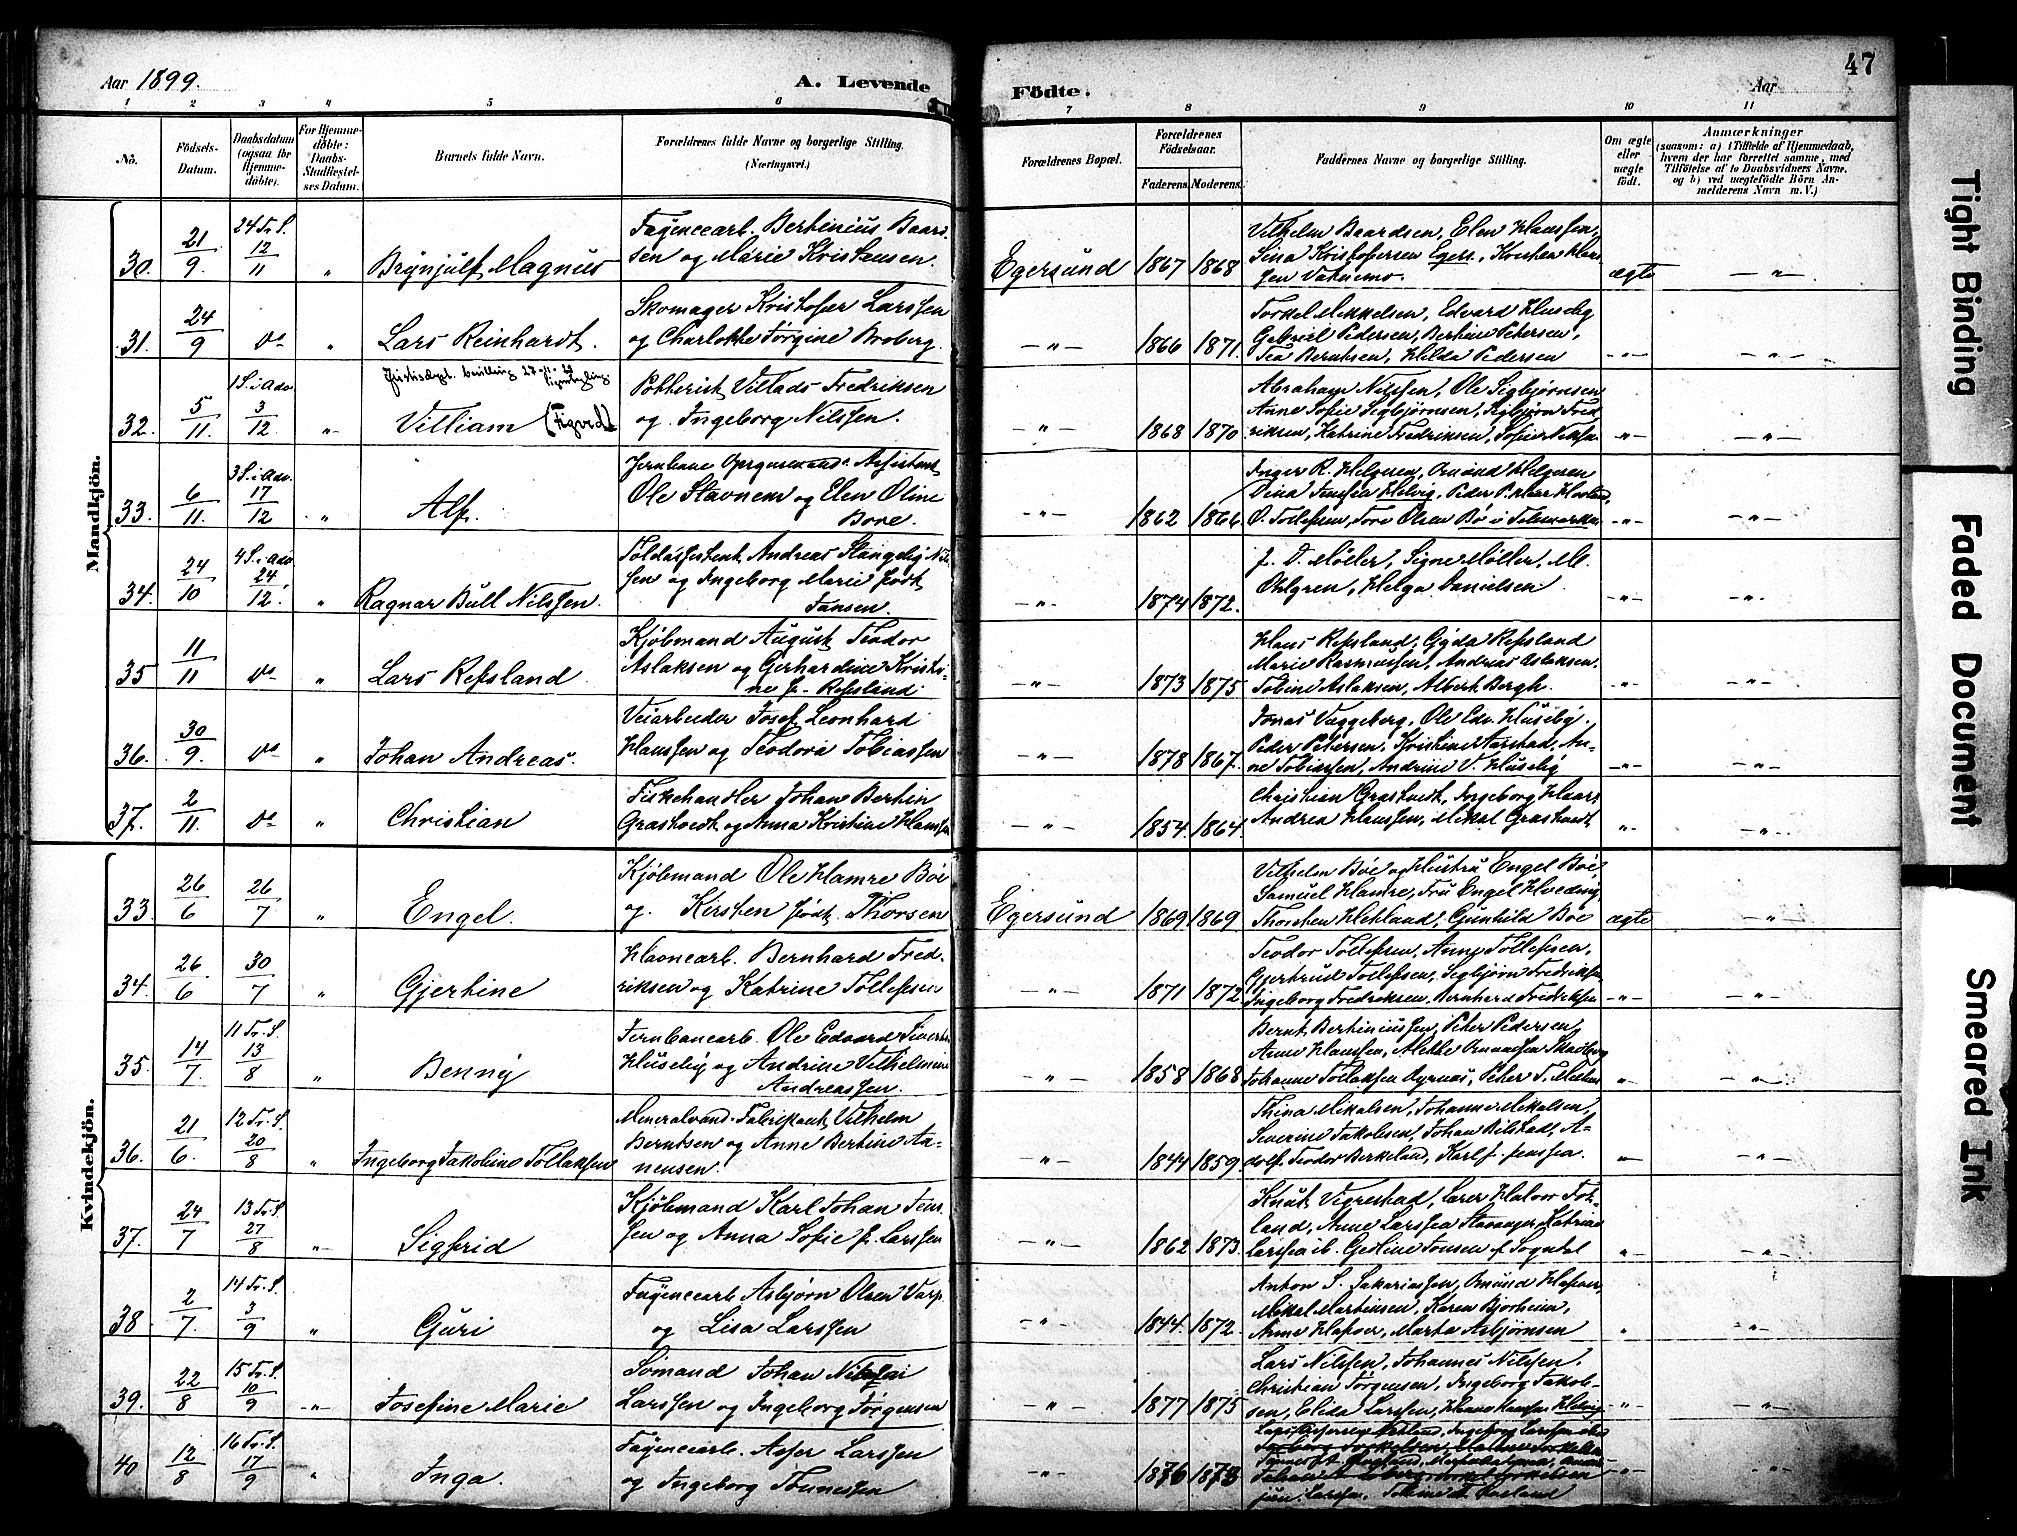 Aar 1899.
A. Levende
Födte.
Aar
47
1 2 3 4 5 6 7 8 9 10 11
No.
Födsels-
Datum.
Daabsdatum
(ogsaa for
Hjemme-
döbte).
For Hjemme-
döbte:
Daabs-
Stadfæstel-
ses Datum.
Barnets fulde Navn.
Forældrenes fulde Navne og borgerlige Stilling.
(Næringsvei.)
Forældrenes Bopæl.
Forældrenes
Födselsaar.
Faderens. Moderens.
Faddernes Navne og borgerlige Stilling.
Om ægte
eller
uægte
födt.
Anmærkninger
(saasom: a) i Tilfælde af Hjemmedaab,
hvem der har forrettet samme, med
Tilföielse af to Daabsvidners Navne,
og b) ved uægtefödte Börn An-
melderens Navn m. V.)
Mandkjön.
30. 21/9. 24 Tr. S. 12/11 " Brynjulf Magnus
Fayencearb. Bertinius Baard-
sen og Marie Kristensen.
Egersund 1867 1868
Vilhelm Baardsen, Elen Hanssen,
Sina Kristofersen Egers.,
ægte — " —
31. 24/9 do " Lars Reinhardt.
Skomager Kristofer Larssen
og Charlotte Jörgine Broberg.
— " — 1866 1871.
Torkel Mikkelsen, Edvard Huseby
Gabriel Pedersen, Bertine Petersen,
Tea Berntsen, Hilda Pedersen
— " — — " —
32. 5/11. 1 S. i Adv. 3/12. — " — William
Potterist Villads Fredriksen
og Ingeborg Nilssen.
— " — 1868 1870
Abraham Nilssen, Ole Sigbjørnsen
Anne Sofie Sigbjørnsen, Sigbjørn Fred-
riksen, Katrine Fredriksen, Sofie
— " — — " —
33. 6/11. 3 S. i Adv. 17/12 " Alf.
Jernbane Assistent
Ole Stavnem og Elen Oline
Bore.
— " — 1862 1866
Inger R. Helgesen, Omund Helgesen
— " — — " —
34. 24/10 4 S. i Adv. 24/12. " Ragnar Bull Nilssen.
Toldassistent Andreas Stangeby Nil-
sen og Ingeborg Marie født
Jansen.
— " — 1874 1872.
J. D. Møller, Signe Møller, M.
Ohlgren, Helga Danielsen.
— " — — " —
35 11/11 do " Lars Refsland
Kjöbmand August Teodor
Aslaksen og Gerhardine Kristi-
ne f. Refsland.
— " — 1873 1875
Hans Refsland, Gyda Refsland
Marie Rasmussen, Andreas Aslaksen,
Tobine Aslaksen, Albert Bergh.
— " — — " —
36. 30/9. do " Johan Andreas.
Veiarbeider Josef Leonhard
Hanssen og Teodora Tobiassen
— " — 1878 1867.
Jonas Væggeberg, Ole Edv. Huseby.
Peder Petersen, Kristine Aarstad, An-
ne Tobiassen, Andrine V. Huseby
— " — — " —
37. 2/11. do " Christian
Fiskehandler Johan Bertin
Grastvedt og Anna Kristine Hanssen
— " — 1854. 1864
Christian Grastvedt, Ingeborg
Andrea Hanssen, Mikal Grastvedt
" — " —
Kvindekjön.
33 26/6 26/7 " Engel.
Kjöbmand Ole Hamre Böe
og Kirsten født Thorsen
Egersund 1869 1869
Vilhelm Böe og Hustru Engel Böe,
Samuel Hamre, Fru Engel
Thorsten Hetland, Gunhild Böe
ægte — " —
34. 26/6 30/7 " Gjertine
Havnearb. Bernhard Fred-
riksen og Katrine Tollefsen
— " — 1871 1872
Teodor Tollefsen, Anne Tollefsen,
Gjertrud Tollefsen, Sigbjørn Fredriksen,
Ingeborg Fredriksen, Bernhard Fredriksen
— " — — " —
35. 14/7. 11 Tr. S. 13/8 " Benny
Jernbanearb. Ole Edvard
Huseby og Andrine Vilhelmine
Andreassen.
— " — 1858 1868
Bernt Bertiniussen, Peter Pedersen,
" — " —
36. 21/6. 12 Tr. S. 20/8 " Ingeborg Jakobine Tollaksen
Mineralvand-Fabrikant Vilhelm
Berntsen og Anne Bertine Aa-
nensen.
— " — 1844 1859.
Thina Mikalsen, Johanne Mikalsen,
Severine Jakobsen, Johan Rilstad, A-
dolf Teodor Birkeland, Karl J. Jenssen.
— — " —
37. 24/7 13 Tr. S. 27/8 — " — Sigfrid
Kjöbmand Karl Johan Jens-
sen og Anna Sofie f. Larssen
— " — 1862 1873.
Knut Vigrestad, Lærer Halvor Tob-
land, Anne Larssen Stavanger, Katrine
Larssen ib. Gesine Jonsen f. Sogndal
" — " —
38 2/7. 14 Tr. S. 3/9 " Guri
Fayencearb. Asbjørn Olsen Varp
og Lisa Larssen
— " — 1844. 1872.
Anton S. Sakariassen,
Mikal Martinsen, Karen Bjorheim,
Marta Asbjørnsen
" — " —
39. 22/8 15 Tr. S. 10/9 — " — Josefine Marie
Sömand Johan Nikolai
Larssen og Ingeborg Jörgensen
— " — 1877 1875
Lars Nilssen, Johannes Nilssen,
Christian Jörgensen, Ingeborg Jakob-
sen, Elida Larssen,
— " — — " —
40 12/8 16 Tr. S. 17/9 " Inga.
Fayencearb. Asser Larssen
og Ingeborg Tönnessen
— " — 1876 1873
— " — — " —
Tight Binding
Faded Document
Smeared Ink